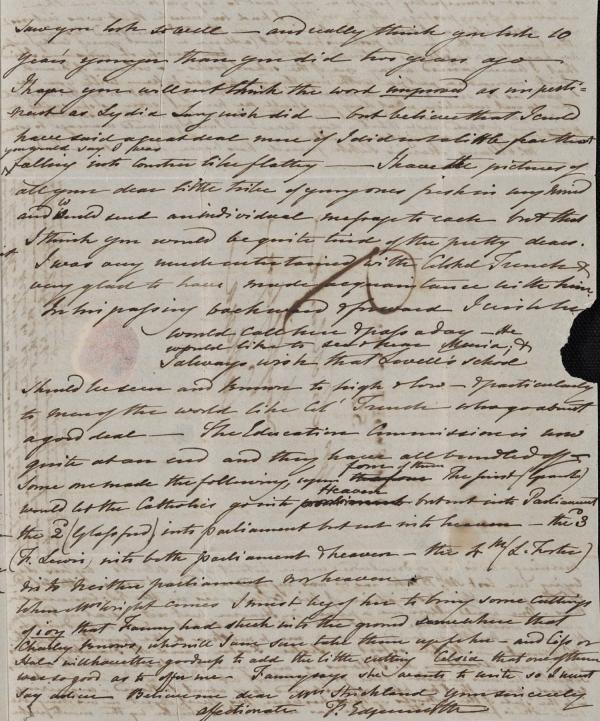 saw you look so well — and really think you look 10
years younger than you did two years ago —
I hope you will not think the word improved as imperti-
nent as Lydia Languish did — but believe that I could
have said a great deal more if I did not a little fear that
you would say I was
falling into countess like flattery — I have the pictures of
all your dear little tribe of young ones fresh in my mind
and would send an individual message to each but that
I think you would be quite tired of the pretty dears.
I was very much entertained with Trench &
very glad to have made acquaintance with him
In his passing backward & forward I wish he
would call here & pass a day — He
would like to see & hear Maria, &
I always wish that Lovell's school
should be seen and known to high & low — & particularly
to men of the world like Cl Trench who go about
a good deal — The Education Commission is now
quite at an end and they have all bundled off —
Some one made the following, upon four of them The first (Grant)
would let the Catholics go into Heaven but not into Parliament
the 2d (Glassford) into parliament but not into heaven — the 3d
(F. Lewis) into both parliament & heaven — the 4th (L. Foster)
into neither parliament nor heaven.
When Mrs Wright comes I must beg of her to bring some cuttings
of ivy that Fanny had stuck into the ground somewhere that
Charley knows, who will I am sure take them up for her — and
will have the goodness to add the little cutting that one of them
was so good as to offer me — Fanny says she wants to write so I must
say adieu Believe me dear Mrs Strickland Yours sincerely
affectionate Edgeworth